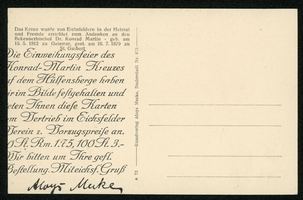 Das Kreuz wurde von Eichsfeldern in der Heimat
und Fremde errichtet zum Andenken an den
Bekennerbischof Dr. Konrad Martin - geb. am
18. 5. 1812 zu Geismar, gest. am 16. 7. 1879 zu
St. Guibert
Die Einweihungsfeier des
Konrad-Martin Kreuzes
auf dem Hülfensberge haben
wir im Bilde festgehalten und
bieten Ihnen diese Karten
zum Vertrieb im Eichsfelder
Verein z. Vorzugspreise an.
50 St. Rm. 1.75, 100 R. 3.-
Wir bitten um Ihre gefl.
Bestellung. Mit eichsf. Gruß
Aloys Mecke
A 73 — Kunstverlag Aloys Mecke, Duderstadt Nr.